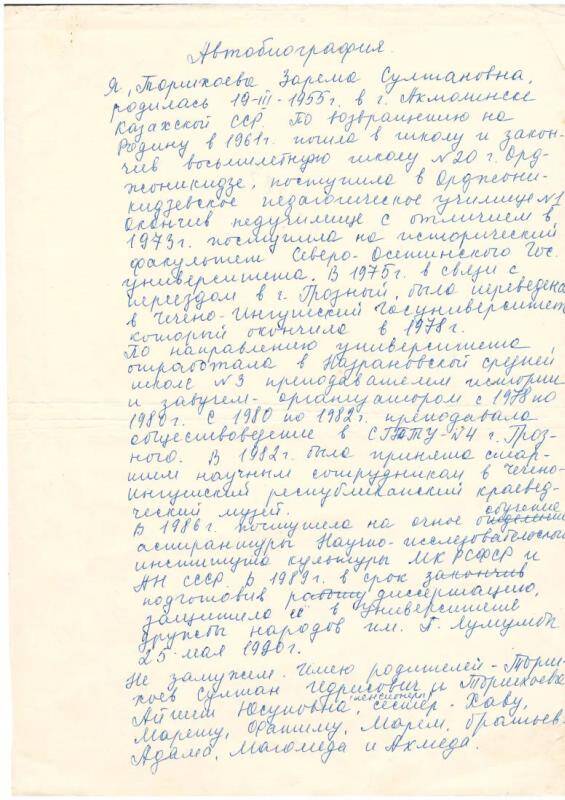 Автобиография.
Я, Торшхоева Зарема Султановна,
родилась 19-III-1955г. в г. Акмолинске
Казахской ССР. По возвращению на
Родину в 1961г. пошла в школу и закон-
чив восьмилетнюю школу №20 г. Орд-
жоникидзе, поступила в Орджони-
кидзевское педагогическое училище №1
Окончив педучилище с отличием в
1973г. поступила на исторический
факультет Северо-Осетинского Гос.
университета. В 1975г. в связи с
переездом в г. Грозный, была переведена
в Чечено-Ингушский Госуниверситет
который окончила в 1978г.
По направлению университета
отработала в Назрановской средней
школе №3 преподавателем истории
и завучем-организатором с 1978 по
1980г. С 1980 по 1982г. преподавала
обществоведение в СГПТУ-№4 г. Гроз-
ного. В 1982г. была принята стар-
шим научным сотрудником в Чечено-
Ингушский республиканский краевед-
ческий музей.
В 1986г. поступила на очное отделение обучение
аспирантуры Научно-исследовательского
института культуры МК РСФСР и
АН СССР. В 1989г. в срок закончив
подготовив работу диссертацию,
защитила её в Университете
дружбы народов им. П. Лумумбы
25 мая 1990г.
Не замужем. Имею родителей - Торш-
хоев Султан Идрисович и Торшхоева
Айшет Юсуповна, пенсионеры, сестер - Хаву,
Марету, Фатиму, Марем, братьев-
Адама, Магомеда и Ахмеда.